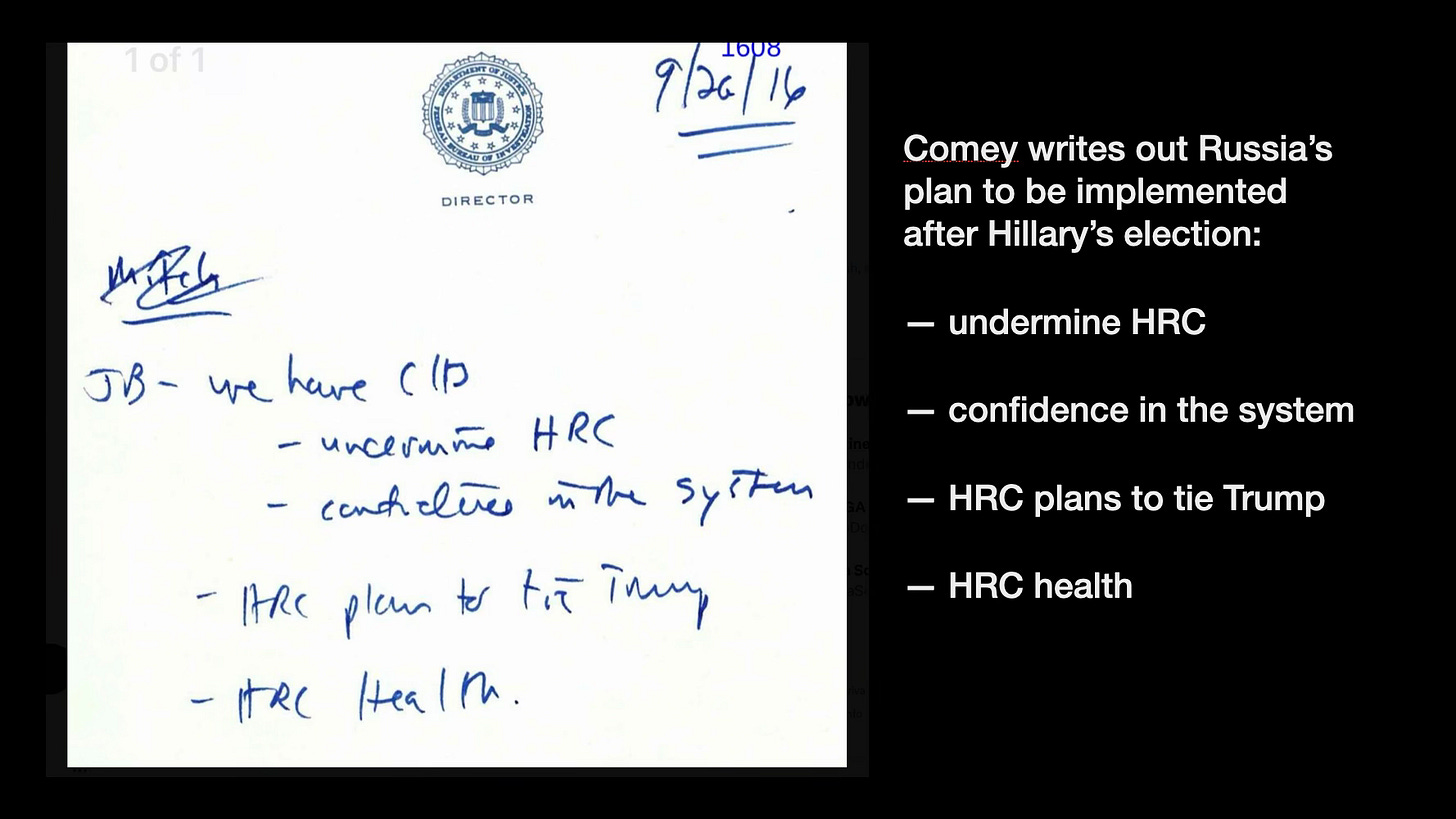 1 of 1
1608
9/26/16
DEPARTMENT OF JUSTICE
FEDERAL BUREAU OF INVESTIGATION
DIRECTOR
JB - we have
- undermine HRC
- in the system
- HRC plans to tie Trump
- HRC Health.
Comey writes out Russia’s
plan to be implemented
after Hillary’s election:
— undermine HRC
— confidence in the system
— HRC plans to tie Trump
— HRC health